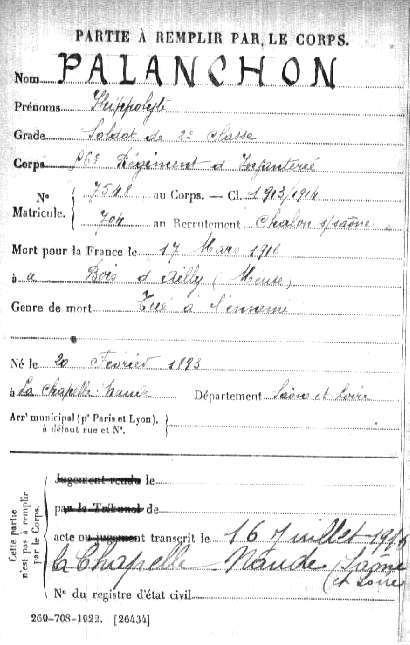 PARTIE À REMPLIR PAR LE CORPS.
Nom PALANCHON
Prénoms Hippolyte
Grade Soldat de 2e Classe
Corps 56e Régiment d'Infanterie
N° Matricule. { 7548 au Corps. — Cl. 1913/1914
704 au Recrutement Chalon s/saône
Mort pour la France le 17 Mars
à a Bois d'Ailly (Meuse)
Genre de mort Tué à l'ennemi
Né le 20 Février 1893
à La Chapelle Naude Département Saône et Loire
Arr' municipal (p' Paris et Lyon),
à défaut rue et N°.
Cette partie n'est pas à remplir par le Corps.
Jugement rendu le
par le Tribunal de
acte ou jugement transcrit le 16 Juillet
la Chapelle Naude (Saône
et Loire
N° du registre d'état civil
260-708-1922. [26434]